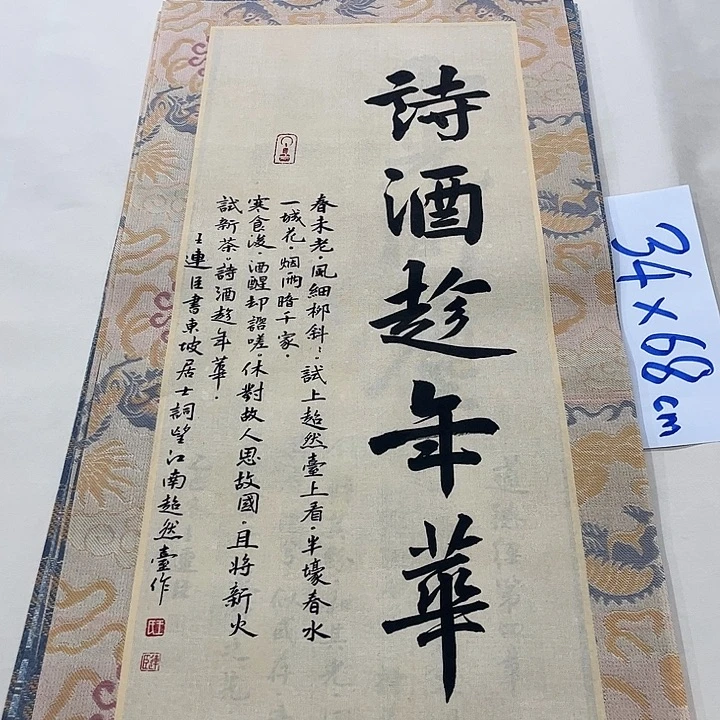 詩酒趁年華
春未老。風細柳斜〻。試上超然臺上看。半壕春水
一城花。烟雨暗千家。
寒食後。酒醒却諮嗟。休對故人思故國。且將新火
試新茶。詩酒趁年華。
王連臣書東坡居士詞望江南超然臺作
34×68cm